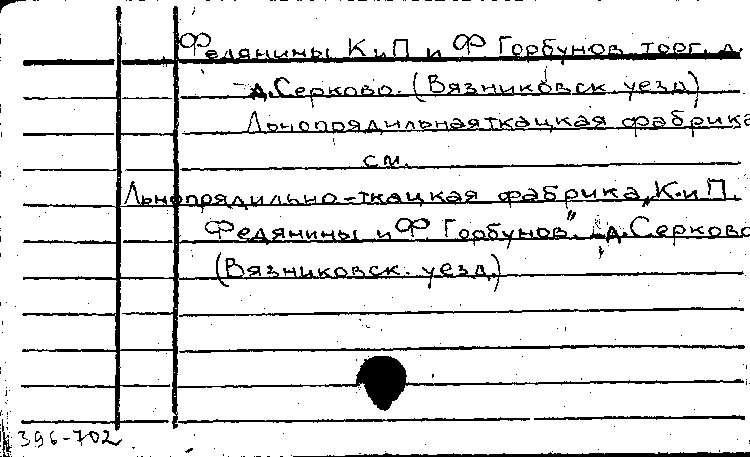 Федянины К и П и Ф Горбунов торг. д.
д. Серково. (Вязниковск. уезд)
Льнопрядильная ткацкая фабрика
см.
Льнопрядильно-ткацкая фабрика „К. и П.
Федянины и Ф. Горбунов". д. Серково
(Вязниковск. уезд.)
396-702